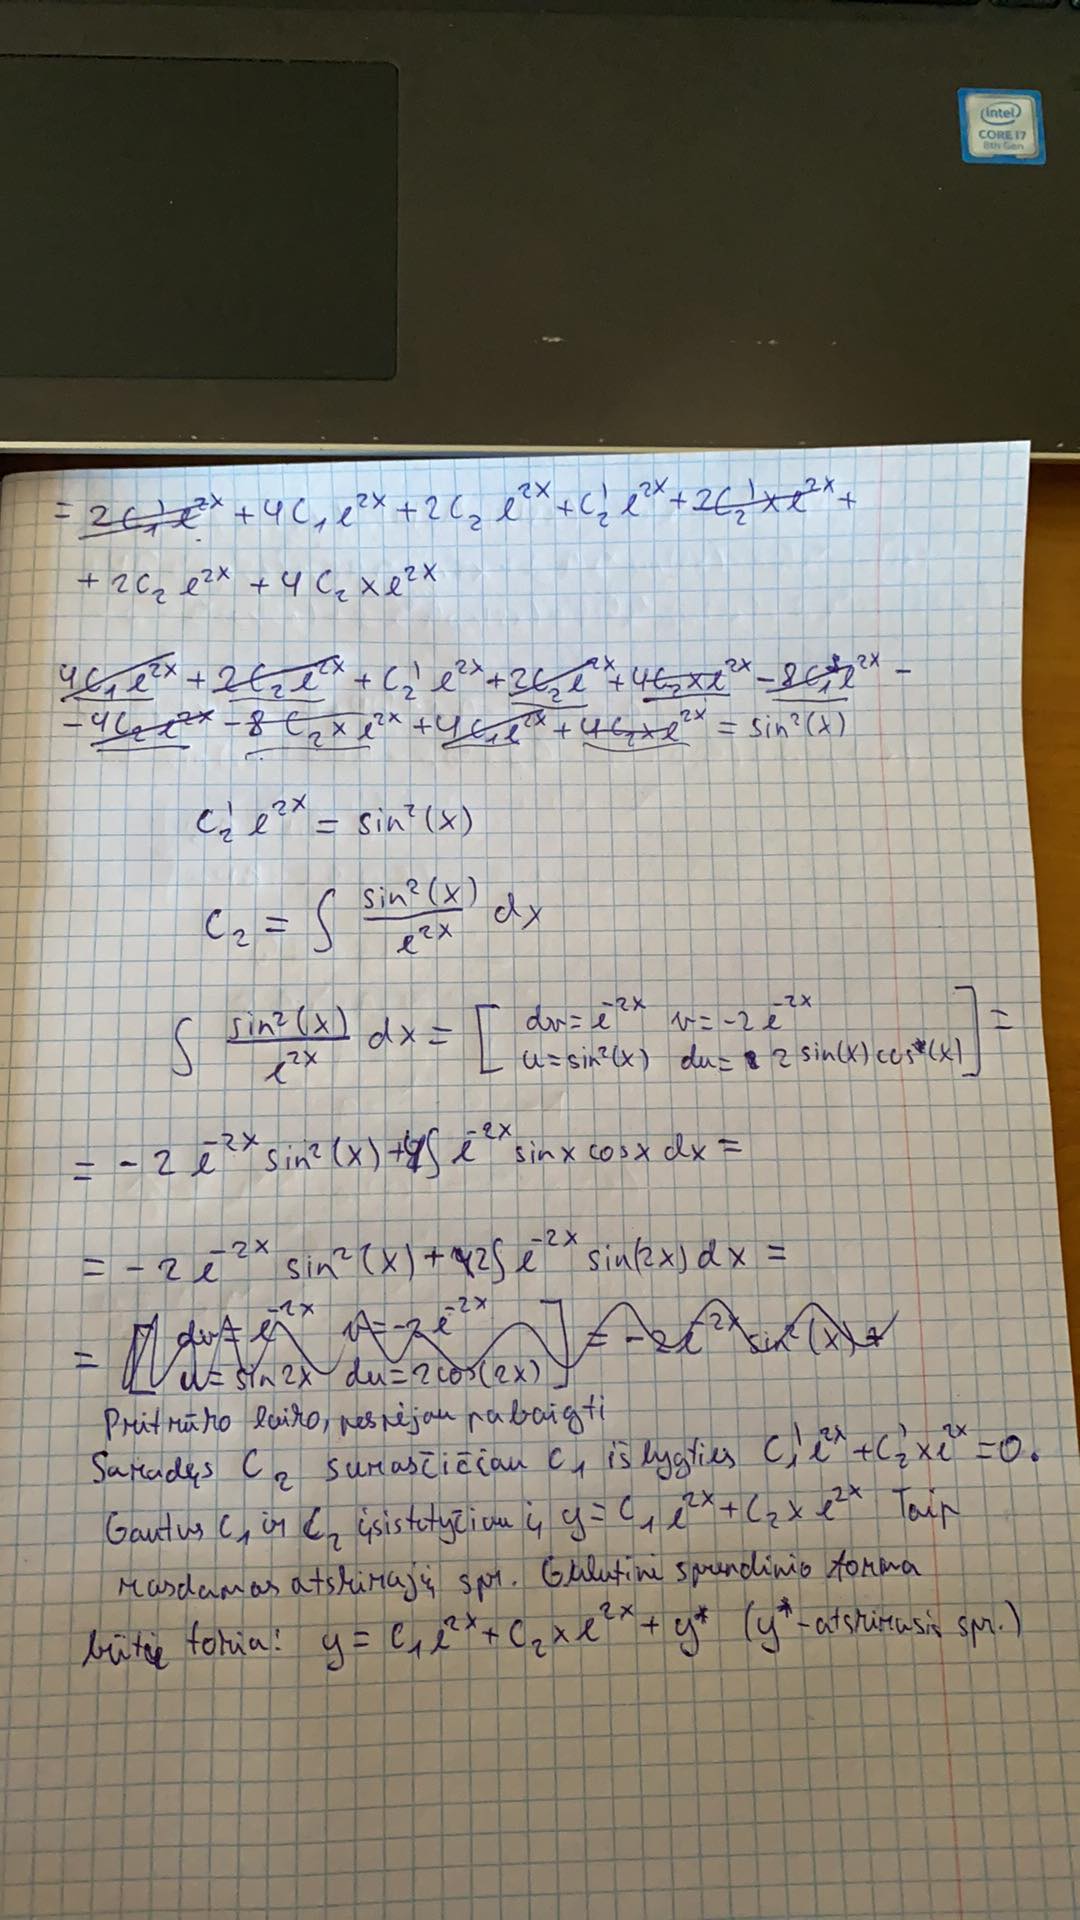 intel
CORE i7
8th Gen
= 2C₁'e^2x + 4C₁e^2x + 2C₂e^2x + C₂'e^2x + 2C₂'xe^2x +
+ 2C₂e^2x + 4C₂xe^2x
4C₁e^2x + 2C₂e^2x + C₂'e^2x + 2C₂e^2x + 4C₂xe^2x - 8C₁e^2x -
- 4C₂e^2x - 8C₂xe^2x + 4C₁e^2x + 4C₂xe^2x = sin²(x)
C₂'e^2x = sin²(x)
C₂ = ∫ sin²(x)/e^2x dx
∫ sin²(x)/e^2x dx = [ dv = e^-2x v = -2e^-2x
u = sin²(x) du = 2 sin(x) cos(x) ] =
= -2e^-2x sin²(x) + 4∫ e^-2x sinx cosx dx =
= -2e^-2x sin²(x) + 2∫ e^-2x sin(2x) dx =
= [ dv = e^-2x v = -2e^-2x ] = -2e^-2x sin²(x) +
u = sin2x du = 2cos(2x)
Pritrūko laiko, nespėjau pabaigti
Saradęs C₂ surasčičiau C₁ iš lygties C₁'e^2x + C₂'xe^2x = 0.
Gautus C₁ ir C₂ įsistatyčiau į y = C₁e^2x + C₂xe^2x Taip
rasdamas atskirąjį spr. Galutinė sprendinio forma
būtų tokia: y = C₁e^2x + C₂xe^2x + y* (y* - atskirasis spr.)